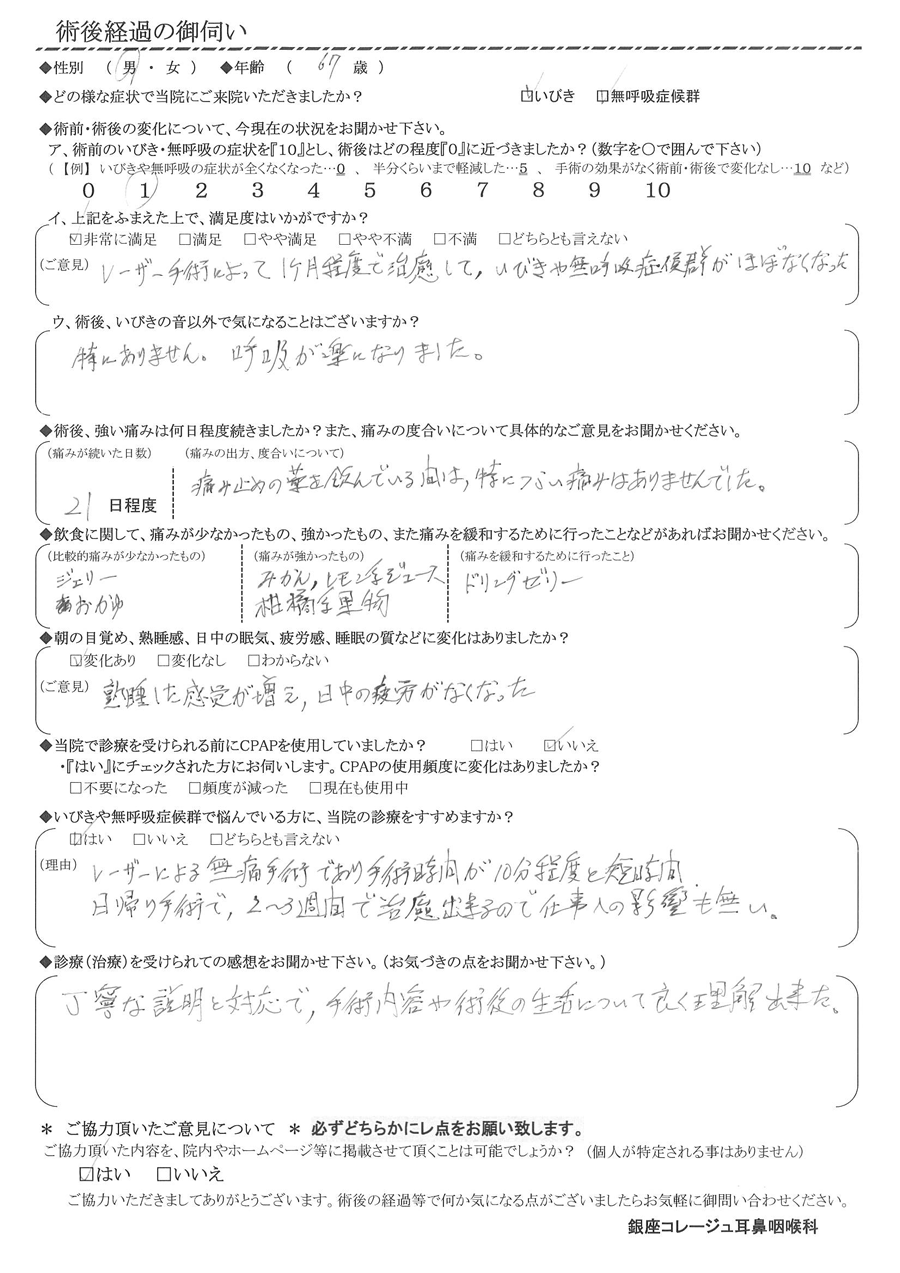 術後経過の御伺い
◆性別 （ 男 ・ 女 ） ◆年齢 （ 67 歳 ）
◆どの様な症状で当院にご来院いただきましたか？ ☑いびき ☑無呼吸症候群
◆術前・術後の変化について、今現在の状況をお聞かせ下さい。
ア、術前のいびき・無呼吸の症状を『10』とし、術後はどの程度『0』に近づきましたか？（数字を○で囲んで下さい）
（【例】 いびきや無呼吸の症状が全くなくなった…0 、 半分くらいまで軽減した…5 、 手術の効果がなく術前・術後で変化なし…10 など）
0 1 2 3 4 5 6 7 8 9 10
イ、上記をふまえた上で、満足度はいかがですか？
☑非常に満足 □満足 □やや満足 □やや不満 □不満 □どちらとも言えない
（ご意見） レーザー手術によって1ケ月程度で治癒して，いびきや無呼吸症候群がほぼなくなった
ウ、術後、いびきの音以外で気になることはございますか？
特にありません。呼吸が楽になりました。
◆術後、強い痛みは何日程度続きましたか？また、痛みの度合いについて具体的なご意見をお聞かせください。
（痛みが続いた日数） （痛みの出方、度合いについて）
痛み止めの薬を飲んでいる間は，特につらい痛みはありませんでした。
21 日程度
◆飲食に関して、痛みが少なかったもの、強かったもの、また痛みを緩和するために行ったことなどがあればお聞かせください。
（比較的痛みが少なかったもの） （痛みが強かったもの） （痛みを緩和するために行ったこと）
ジェリー みかん，レモン等ジュース ドリングゼリー
おかゆ 柑橘系果物
◆朝の目覚め、熟睡感、日中の眠気、疲労感、睡眠の質などに変化はありましたか？
☑変化あり □変化なし □わからない
（ご意見） 熟睡した感覚が増え，日中の疲労がなくなった
◆当院で診療を受けられる前にCPAPを使用していましたか？ □はい ☑いいえ
・『はい』にチェックされた方にお伺いします。CPAPの使用頻度に変化はありましたか？
□不要になった □頻度が減った □現在も使用中
◆いびきや無呼吸症候群で悩んでいる方に、当院の診療をすすめますか？
☑はい □いいえ □どちらとも言えない
（理由） レーザーによる無痛手術であり手術時間が10分程度と短時間
日帰り手術で，2〜3週間で治癒出来るので仕事への影響も無い。
◆診療（治療）を受けられての感想をお聞かせ下さい。（お気づきの点をお聞かせ下さい。）
丁寧な説明と対応で，手術内容や術後の生活について良く理解出来た。
＊ ご協力頂いたご意見について ＊ 必ずどちらかにレ点をお願い致します。
ご協力頂いた内容を、院内やホームページ等に掲載させて頂くことは可能でしょうか？（個人が特定される事はありません）
☑はい □いいえ
ご協力いただきましてありがとうございます。術後の経過等で何か気になる点がございましたらお気軽に御問い合わせください。
銀座コレージュ耳鼻咽喉科